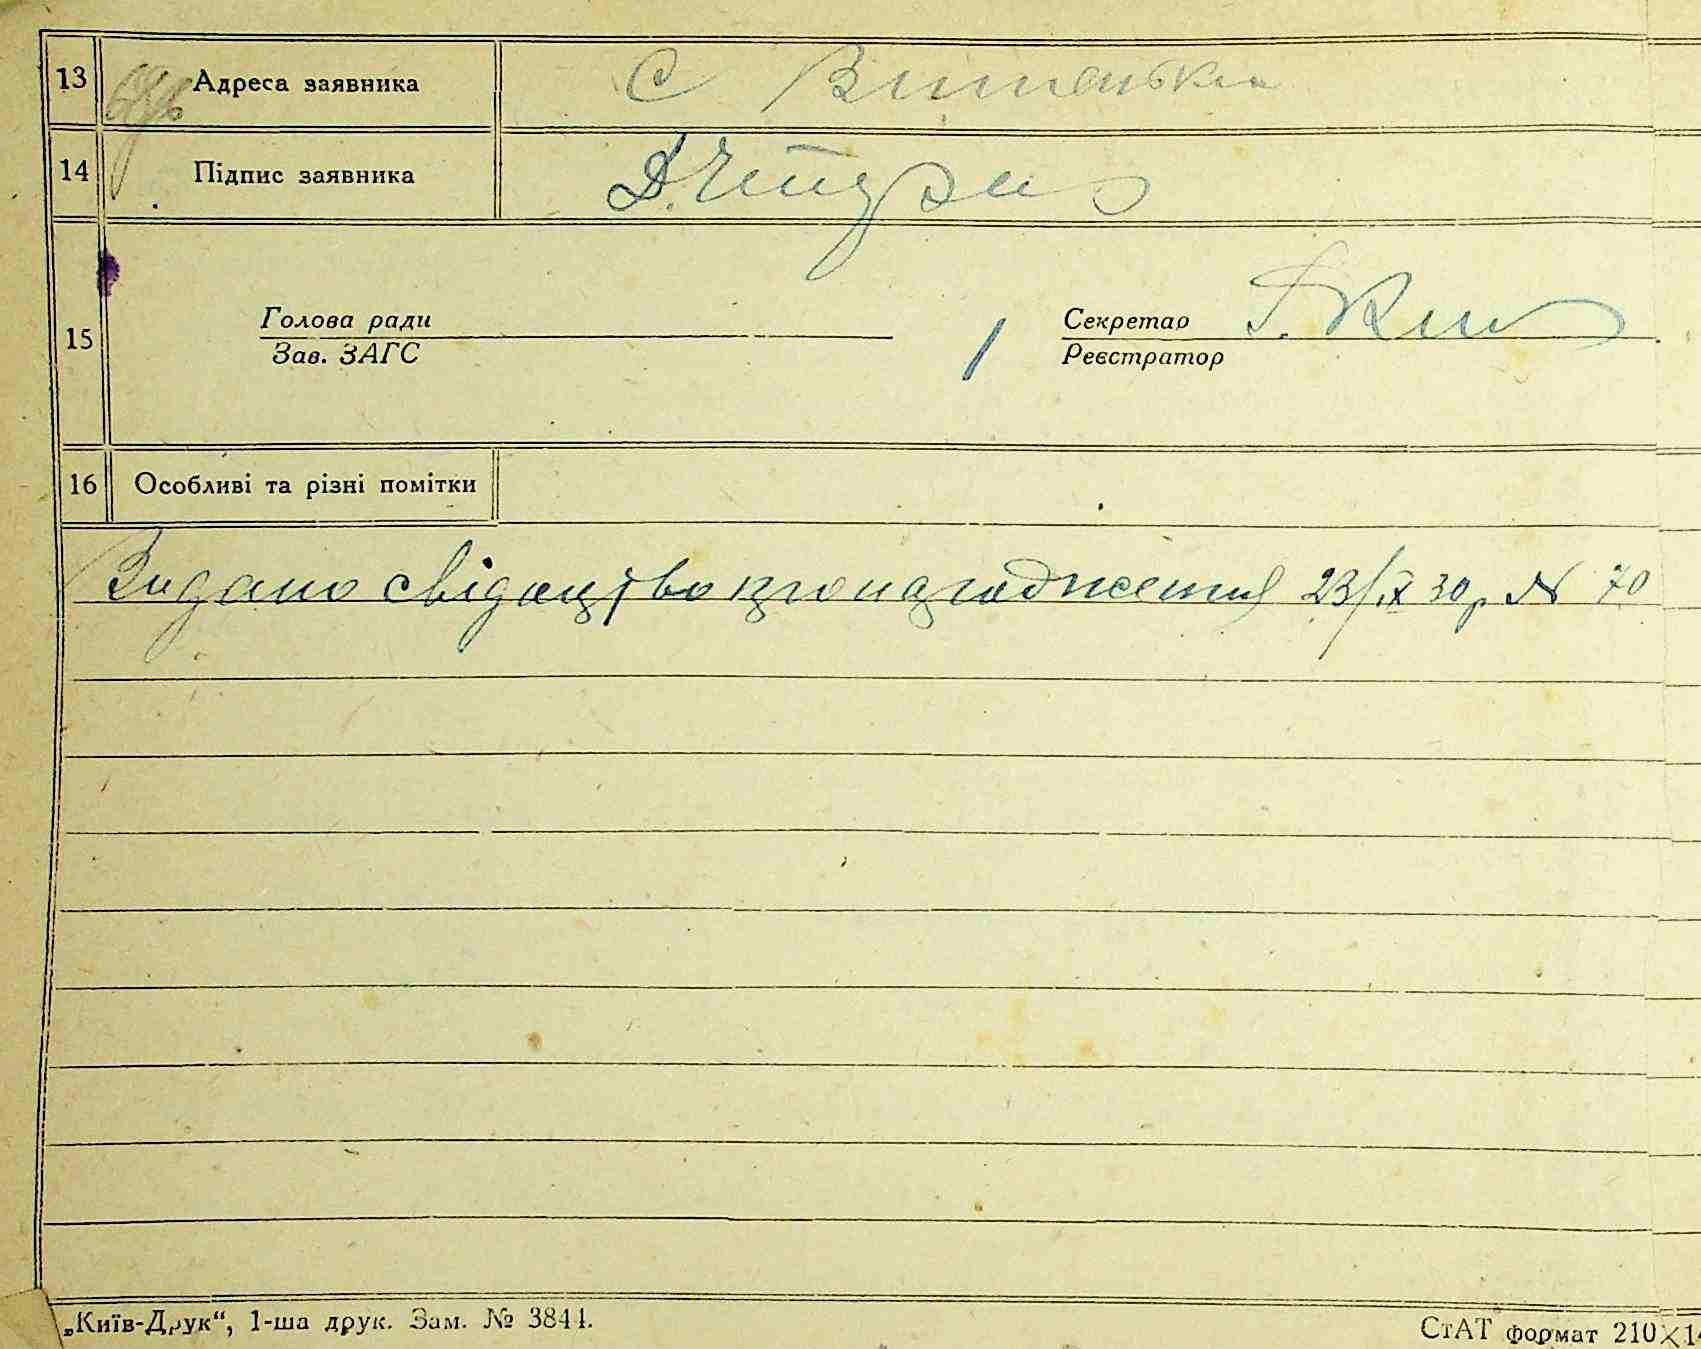 13 Адреса заявника с Вишенька
14 Підпис заявника Д.
15 Голова ради Секретар
Зав. ЗАГС Реєстратор
16 Особливі та різні помітки
Видано свідоцтво про народження 23/IX 30р № 70
„Київ-Друк“, 1-ша друк. Зам. № 3844.
СтАТ формат 210×14